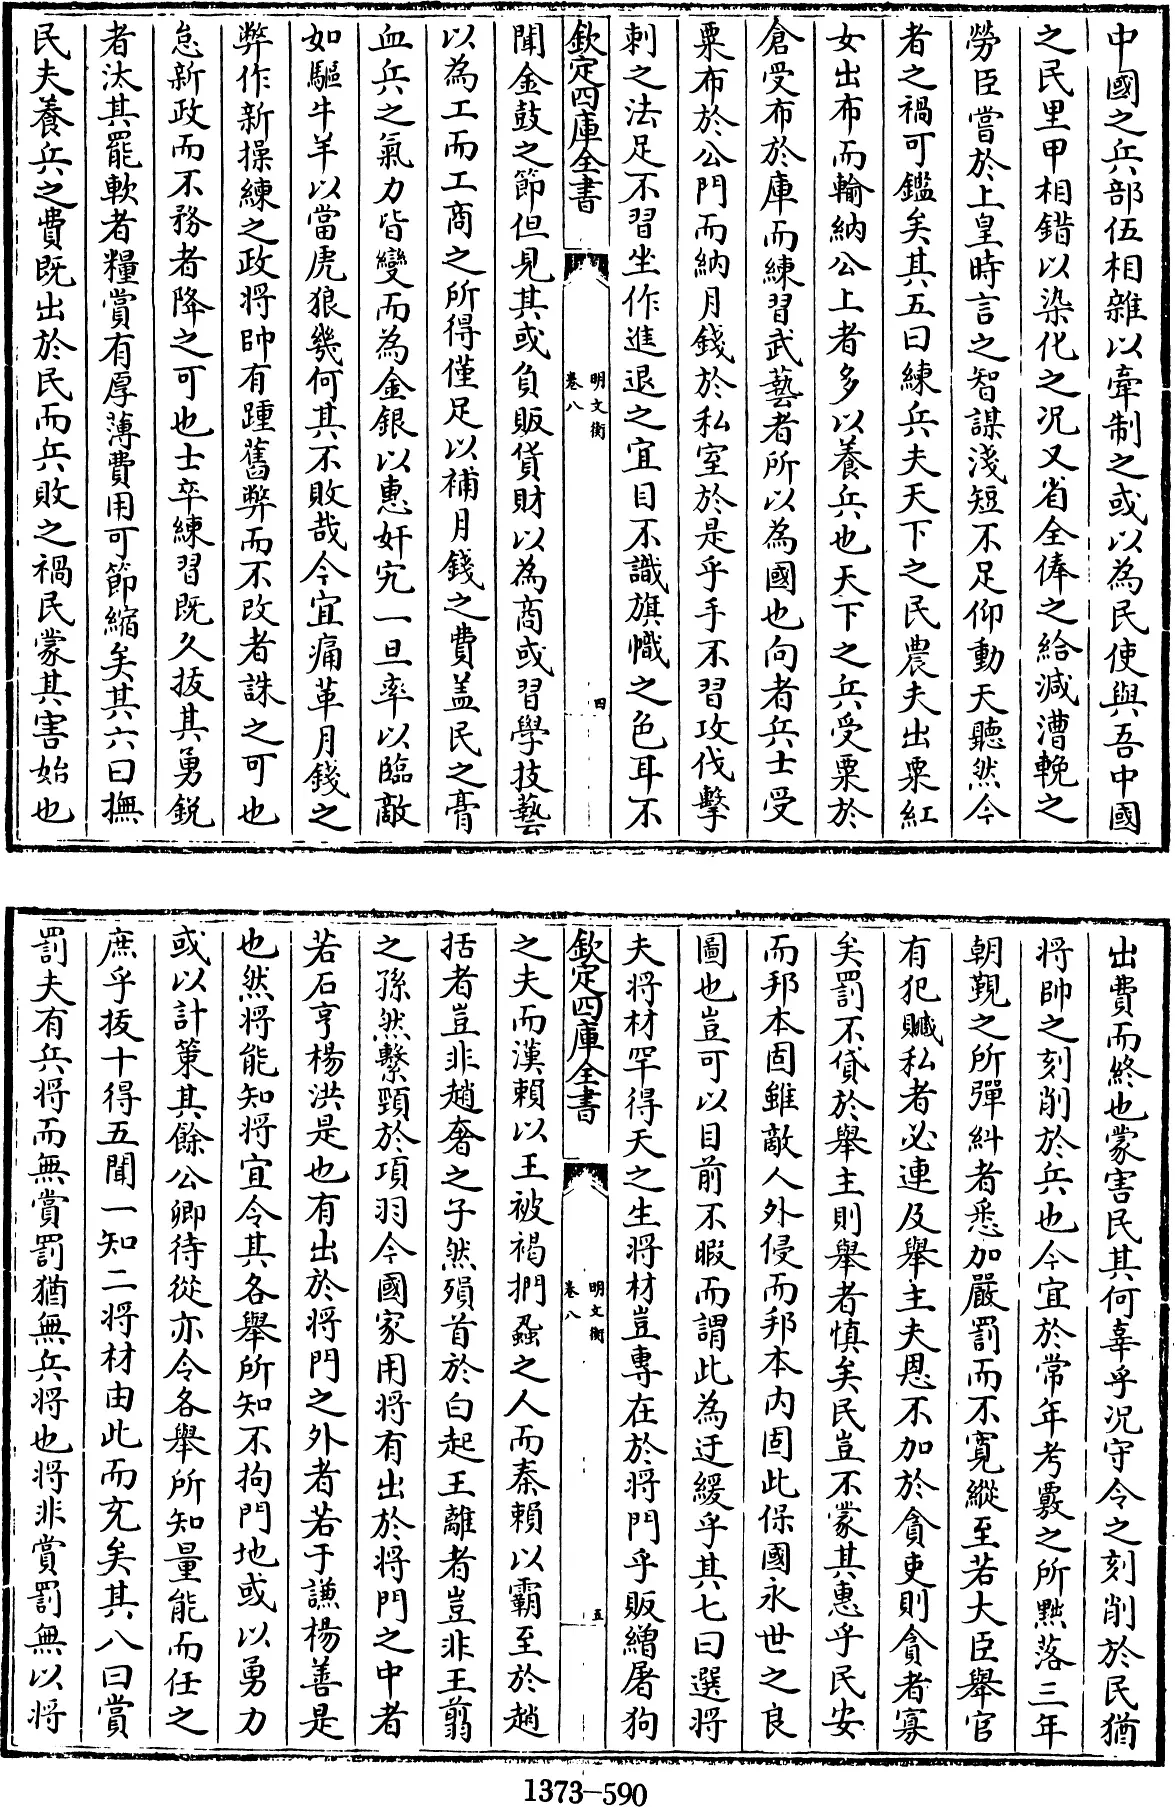 中國之兵部伍相雜以牽制之或以為民使與吾中國
之民里甲相錯以染化之況又省全俸之給減漕輓之
勞臣嘗於上皇時言之智謀淺短不足仰動天聽然今
者之禍可鑑矣其五曰練兵夫天下之民農夫出粟紅
女出布而輸納公上者多以養兵也天下之兵受粟於
倉受布於庫而練習武藝者所以為國也向者兵士受
粟布於公門而納月錢於私室於是乎手不習攻伐擊
刺之法足不習坐作進退之宜目不識旗幟之色耳不
欽定四庫全書
明文衡
卷八
四
聞金鼓之節但見其或負販貨財以為商或習學技藝
以為工而工商之所得僅足以補月錢之費盖民之膏
血兵之氣力皆變而為金銀以惠奸宄一旦率以臨敵
如驅牛羊以當虎狼幾何其不敗哉今宜痛革月錢之
弊作新操練之政將帥有踵舊弊而不改者誅之可也
怠新政而不務者降之可也士卒練習既久拔其勇銳
者汰其罷軟者糧賞有厚薄費用可節縮矣其六曰撫
民夫養兵之費既出於民而兵敗之禍民蒙其害始也
出費而終也蒙害民其何辜乎況守令之刻削於民猶
將帥之刻削於兵也今宜於常年考覈之所黜落三年
朝覲之所彈糾者悉加嚴罰而不寬縱至若大臣舉官
有犯贓私者必連及舉主夫恩不加於貪吏則貪者寡
矣罰不貸於舉主則舉者慎矣民豈不蒙其惠乎民安
而邦本固雖敵人外侵而邦本内固此保國永世之良
圖也豈可以目前不暇而謂此為迂緩乎其七曰選將
夫將材罕得天之生將材豈專在於將門乎販繒屠狗
欽定四庫全書
明文衡
卷八
五
之夫而漢賴以王被褐捫蝨之人而秦賴以霸至於趙
括者豈非趙奢之子然殞首於白起王離者豈非王翦
之孫然繫頸於項羽今國家用將有出於將門之中者
若石亨楊洪是也有出於將門之外者若于謙楊善是
也然將能知將宜令其各舉所知不拘門地或以勇力
或以計策其餘公卿待從亦令各舉所知量能而任之
庶乎拔十得五聞一知二將材由此而充矣其八曰賞
罰夫有兵將而無賞罰猶無兵將也將非賞罰無以將
1373-590